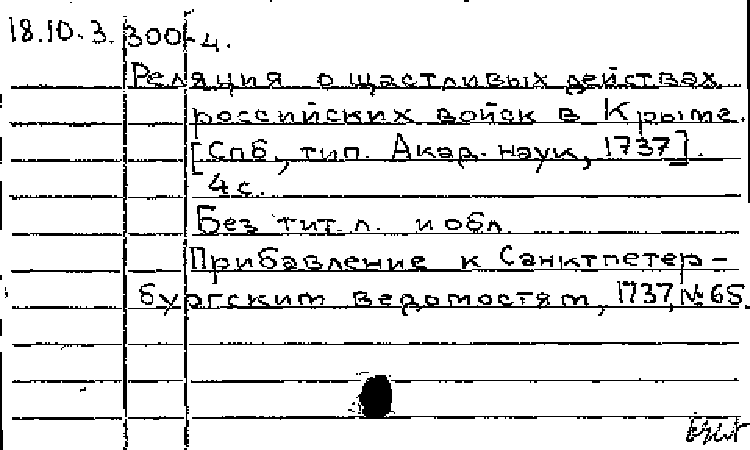 18.10.3.300-4.
Реляция о щастливых действах
российских войск в Крыме.
[Спб, тип. Акад. наук, 1737].
4 с.
Без тит. л. и обл.
Прибавление к Санктпетер-
бургским ведомостям, 1737, № 65.